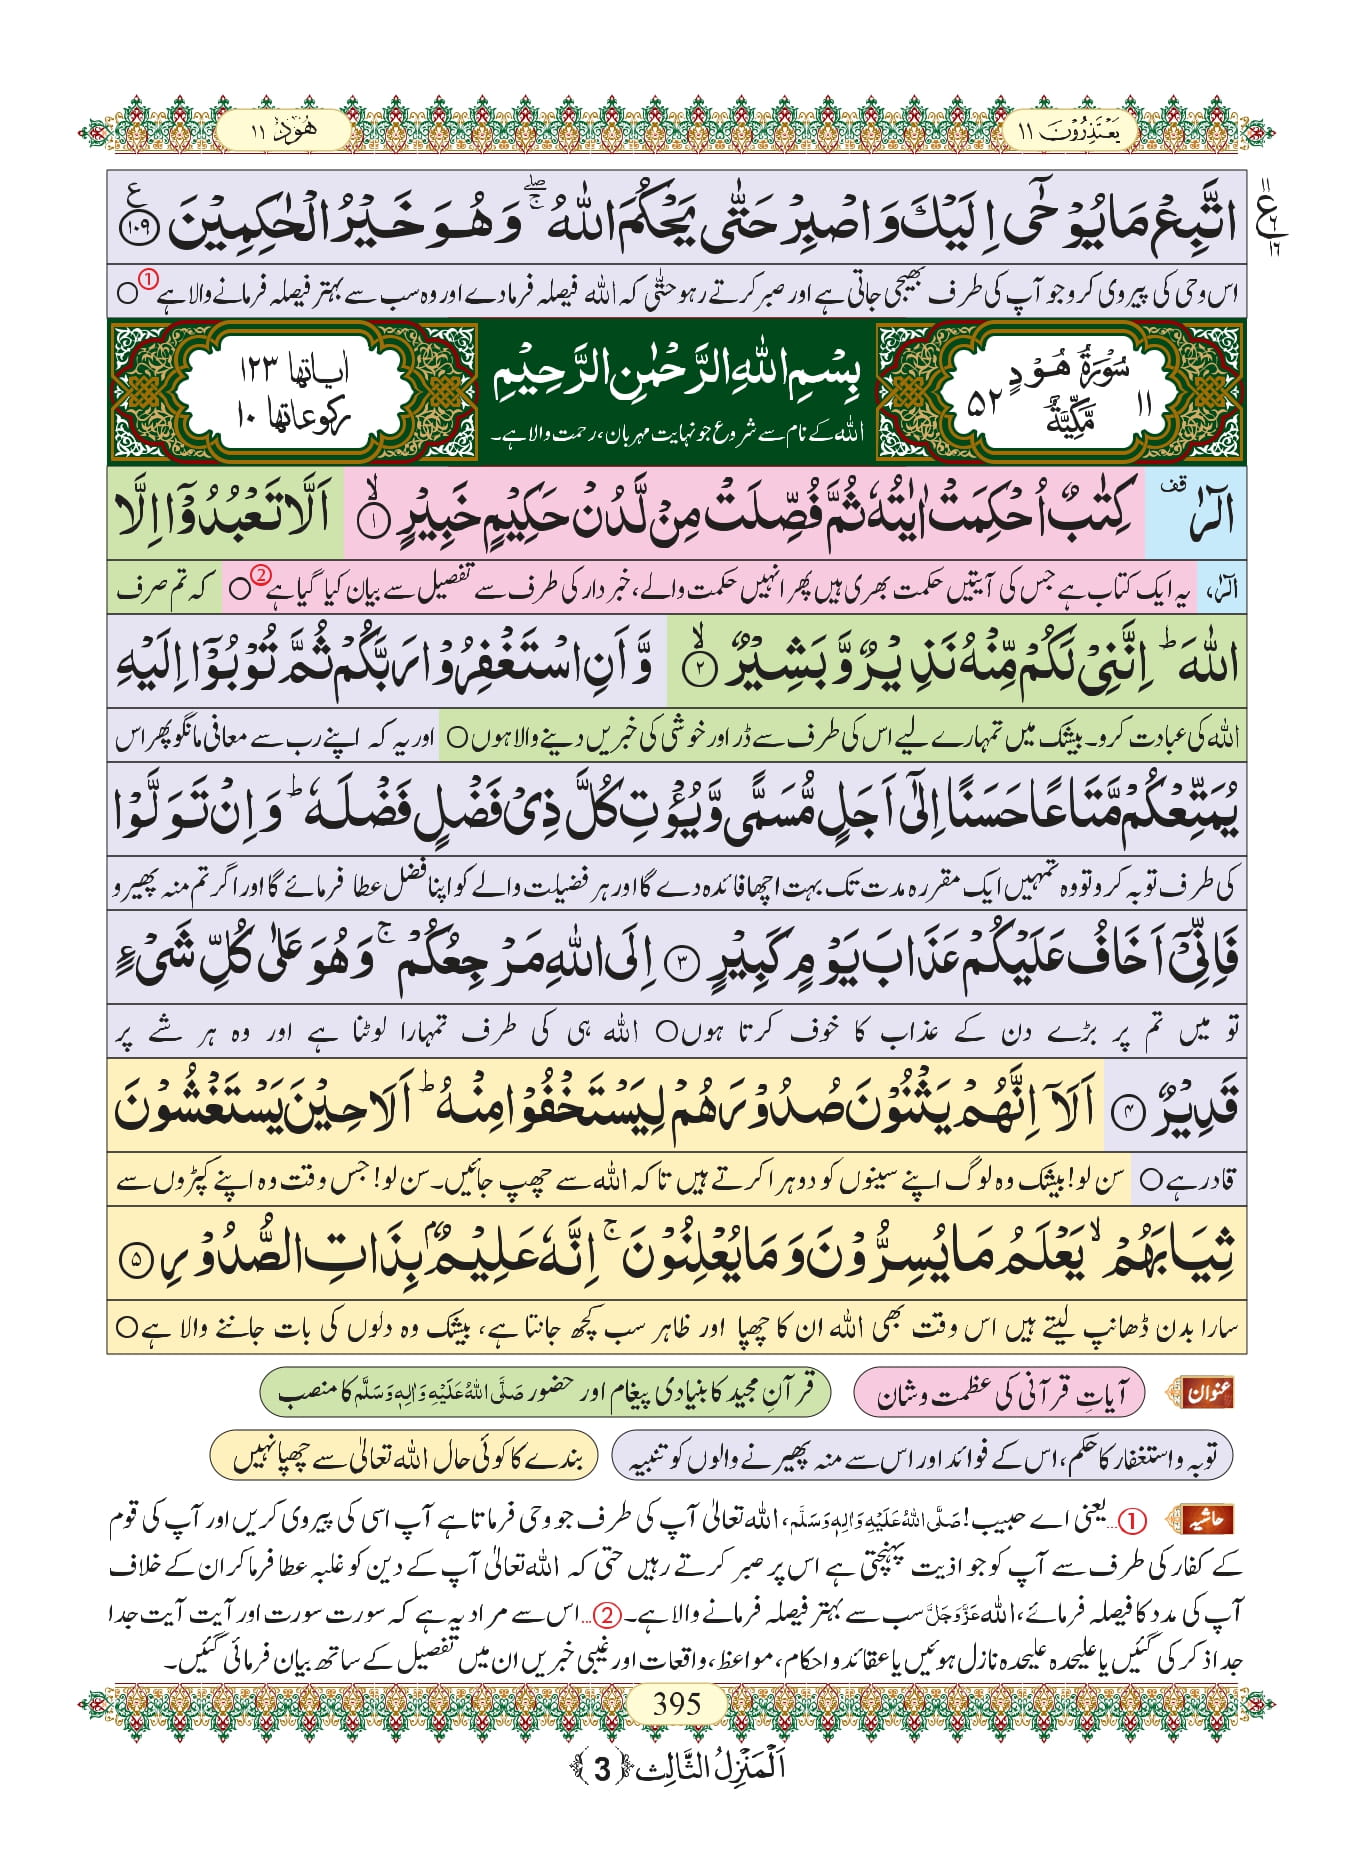 یَعْتَذِرُوْنَ ۱۱
هُوْد ۱۱
اتَّبِعْ مَا یُوْحٰۤى اِلَیْكَ وَ اصْبِرْ حَتّٰى یَحْكُمَ اللّٰهُ ۚۖ وَ هُوَ خَیْرُ الْحٰكِمِیْنَ ۱۰۹ ع
۱۱ ع ۶ ۱۶
اس وحی کی پیروی کرو جو آپ کی طرف بھیجی جاتی ہے اور صبر کرتے رہو حتّٰی کہ اللہ فیصلہ فرمادے اور وہ سب سے بہتر فیصلہ فرمانے والا ہے ① ○
سُوْرَةُ هُوْدٍ ۱۱ مَّكِّیَّةٌ ۵۲
بِسْمِ اللّٰهِ الرَّحْمٰنِ الرَّحِیْمِ
اللہ کے نام سے شروع جو نہایت مہربان، رحمت والا ہے۔
اٰیاتها ۱۲۳
رکوعاتها ۱۰
الٓرٰ قف كِتٰبٌ اُحْكِمَتْ اٰیٰتُهٗ ثُمَّ فُصِّلَتْ مِنْ لَّدُنْ حَكِیْمٍ خَبِیْرٍ ۙ ۱ اَلَّا تَعْبُدُوْۤا اِلَّا
الٓرٰ، یہ ایک کتاب ہے جس کی آیتیں حکمت بھری ہیں پھر انہیں حکمت والے، خبردار کی طرف سے تفصیل سے بیان کیا گیا ہے ② ○ کہ تم صرف
اللّٰهَ ؕ اِنَّنِیْ لَكُمْ مِّنْهُ نَذِیْرٌ وَّ بَشِیْرٌ ۙ ۲ وَّ اَنِ اسْتَغْفِرُوْا رَبَّكُمْ ثُمَّ تُوْبُوْۤا اِلَیْهِ
اللہ کی عبادت کرو۔ بیشک میں تمہارے لیے اس کی طرف سے ڈر اور خوشی کی خبریں دینے والا ہوں ○ اور یہ کہ اپنے رب سے معافی مانگو پھر اس
یُمَتِّعْكُمْ مَّتَاعًا حَسَنًا اِلٰۤى اَجَلٍ مُّسَمًّى وَّ یُؤْتِ كُلَّ ذِیْ فَضْلٍ فَضْلَهٗ ؕ وَ اِنْ تَوَلَّوْا
کی طرف توبہ کرو تو وہ تمہیں ایک مقررہ مدت تک بہت اچھا فائدہ دے گا اور ہر فضیلت والے کو اپنا فضل عطا فرمائے گا اور اگر تم منہ پھیرو
فَاِنِّیْۤ اَخَافُ عَلَیْكُمْ عَذَابَ یَوْمٍ كَبِیْرٍ ۳ اِلَى اللّٰهِ مَرْجِعُكُمْ ۚ وَ هُوَ عَلٰى كُلِّ شَیْءٍ
تو میں تم پر بڑے دن کے عذاب کا خوف کرتا ہوں ○ اللہ ہی کی طرف تمہارا لوٹنا ہے اور وہ ہر شے پر
قَدِیْرٌ ۴ اَلَاۤ اِنَّهُمْ یَثْنُوْنَ صُدُوْرَهُمْ لِیَسْتَخْفُوْا مِنْهُ ؕ اَلَا حِیْنَ یَسْتَغْشُوْنَ
قادر ہے ○ سن لو! بیشک وہ لوگ اپنے سینوں کو دوہرا کرتے ہیں تاکہ اللہ سے چھپ جائیں۔ سن لو! جس وقت وہ اپنے کپڑوں سے
ثِیَابَهُمْ ۙ یَعْلَمُ مَا یُسِرُّوْنَ وَ مَا یُعْلِنُوْنَ ۚ اِنَّهٗ عَلِیْمٌۢ بِذَاتِ الصُّدُوْرِ ۵
سارا بدن ڈھانپ لیتے ہیں اس وقت بھی اللہ ان کا چھپا اور ظاہر سب کچھ جانتا ہے، بیشک وہ دلوں کی بات جاننے والا ہے ○
عنوان آیاتِ قرآنی کی عظمت وشان قرآنِ مجید کا بنیادی پیغام اور حضور صَلَّی اللہُ عَلَیْہِ وَاٰلِہٖ وَسَلَّم کا منصب
توبہ و استغفار کا حکم، اس کے فوائد اور اس سے منہ پھیرنے والوں کو تنبیہ بندے کا کوئی حال اللہ تعالیٰ سے چھپا نہیں
حاشیہ ①...یعنی اے حبیب! صَلَّی اللہُ عَلَیْہِ وَاٰلِہٖ وَسَلَّم، اللہ تعالیٰ آپ کی طرف جو وحی فرماتا ہے آپ اسی کی پیروی کریں اور آپ کی قوم
کے کفار کی طرف سے آپ کو جو اذیت پہنچتی ہے اس پر صبر کرتے رہیں حتی کہ اللہ تعالیٰ آپ کے دین کو غلبہ عطا فرما کر ان کے خلاف
آپ کی مدد کا فیصلہ فرمائے، اللہ عَزَّوَجَلَّ سب سے بہتر فیصلہ فرمانے والا ہے۔ ②...اس سے مراد یہ ہے کہ سورت سورت اور آیت آیت جدا
جدا ذکر کی گئیں یا علیحدہ علیحدہ نازل ہوئیں یا عقائد و احکام، مواعظ، واقعات اور غیبی خبریں ان میں تفصیل کے ساتھ بیان فرمائی گئیں۔
395
اَلْمَنْزِلُ الثَّالِث ﴿3﴾